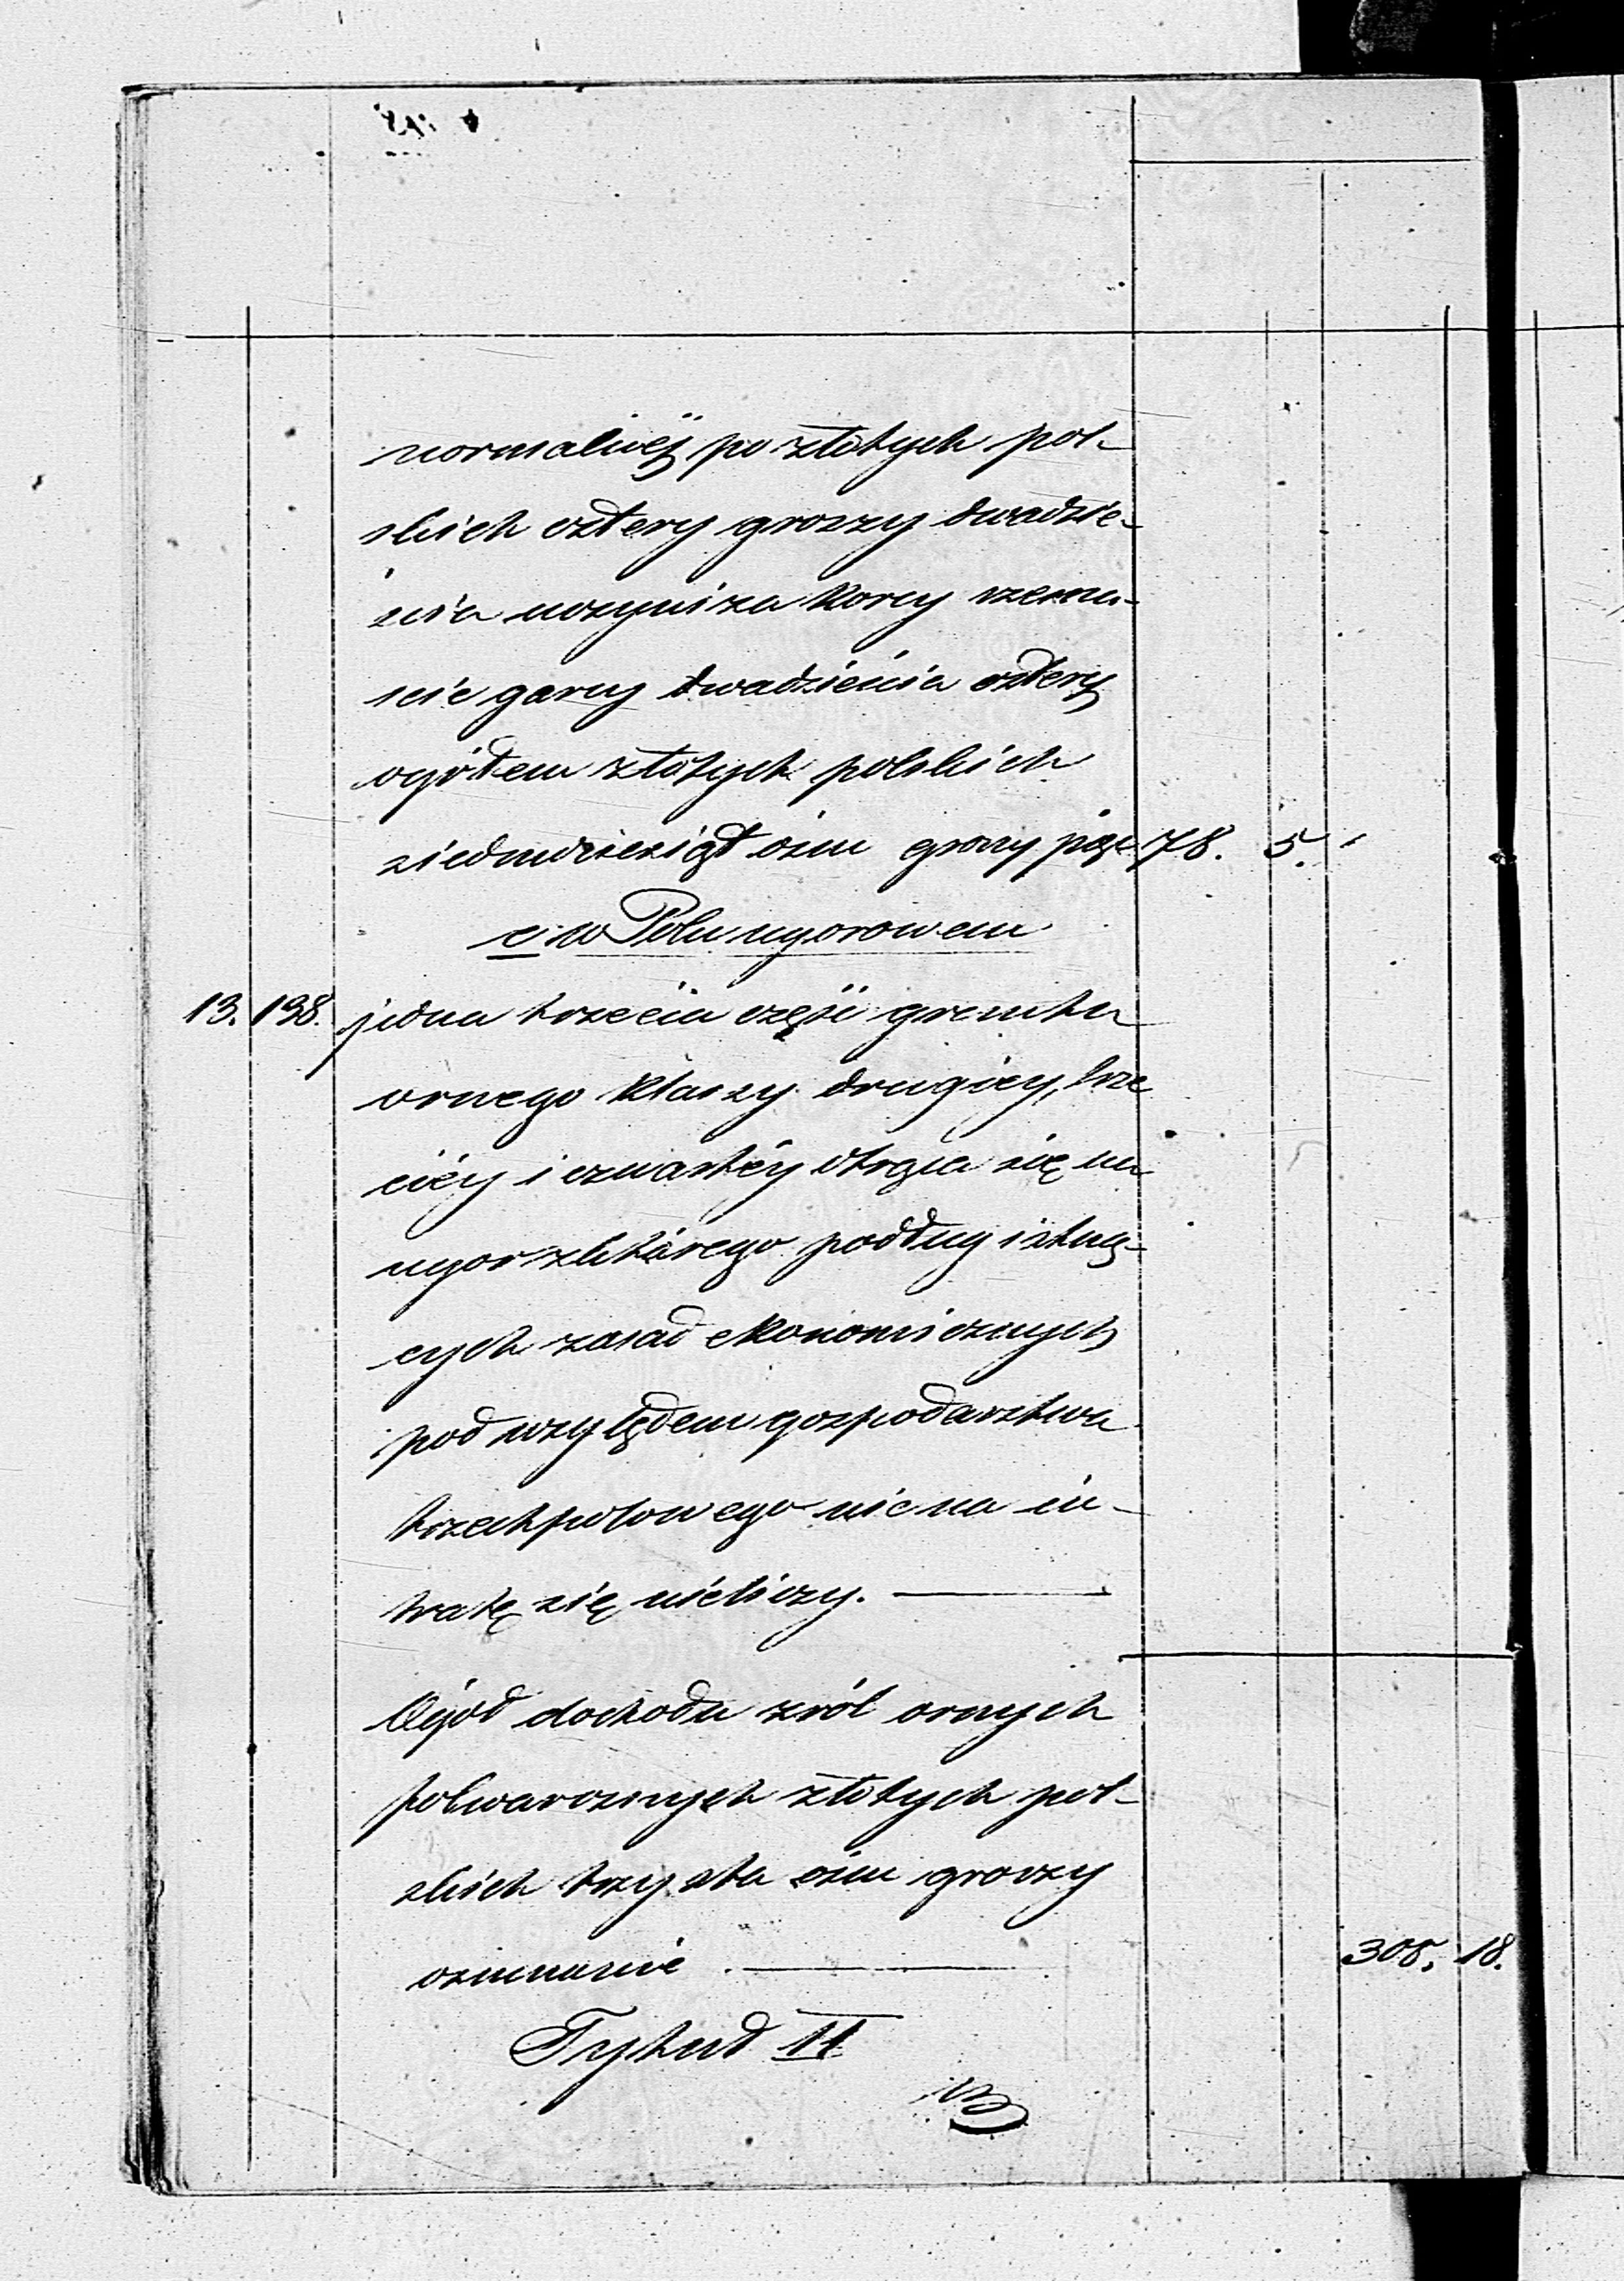 normalnéj po złotych pol-
skich cztery groszy dwadzie-
ścia uczyni za korcy szesna-
ście garcy dwadzieścia cztery
ogółem złotych polskich
siedmdziesiąt ośm groszy pięć 78. 5.
c, w Polu ugorowem
13. 198. jedna trzecia część gruntu
ornego klassy drugiey, trze
ciéy i czwartéy otrąca się na
ugor z którego podług istnią-
cych zasad ekonomicznych
pod względem gospodarstwa
trzechpolowego nic na in-
tratę się nieliczy.
Ogół dochodu z ról ornych
folwarcznych złotych pol-
skich trzysta ośm groszy
ośmnaście 308. 18.
Tytuł II